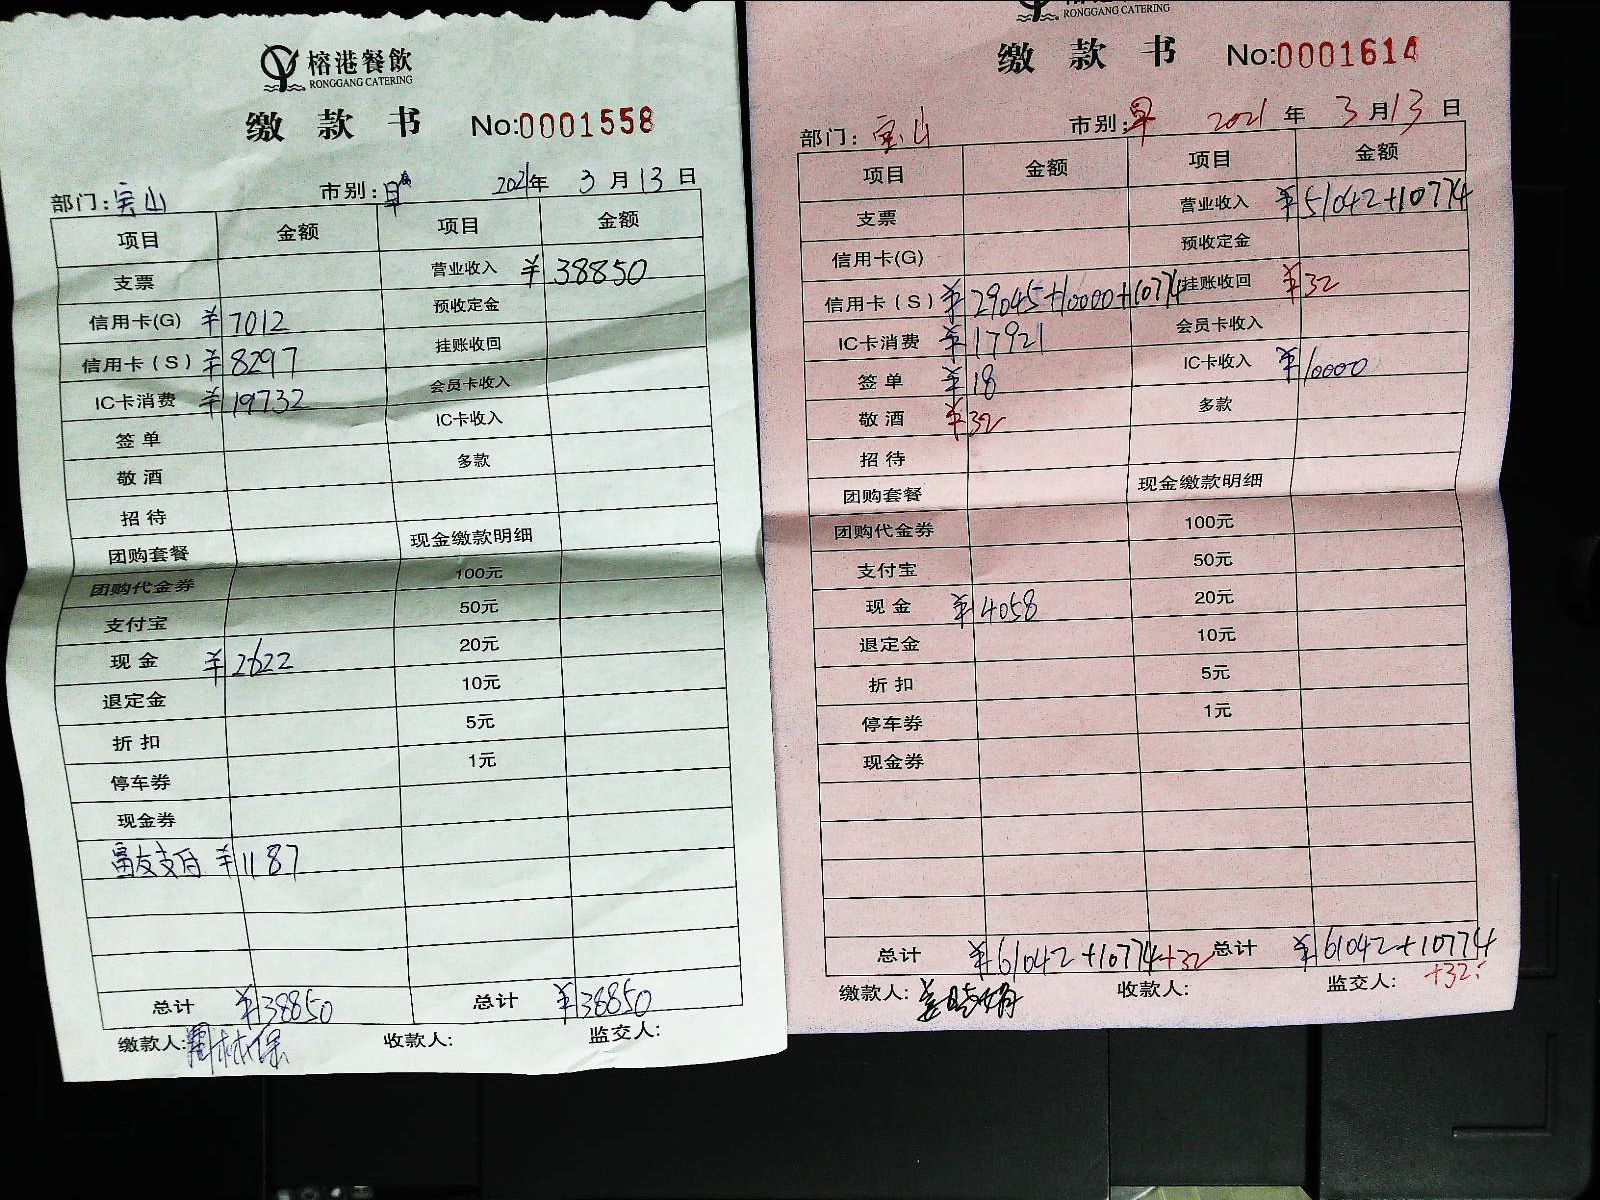 榕港餐飲
RONGGANG CATERING
缴款书 No:0001558
部门: 宝山 市别: 早 2021年 3月13日
项目 金额 项目 金额
支票 营业收入 ¥38850
信用卡(G) ¥7012 预收定金
信用卡(S) ¥8297 挂账收回
IC卡消费 ¥19732 会员卡收入
签单 IC卡收入
敬酒 多款
招待
团购套餐 现金缴款明细
团购代金券 100元
支付宝 50元
现金 ¥2622 20元
退定金 10元
折扣 5元
停车券 1元
现金券
富友支付 ¥1187
总计 ¥38850 总计 ¥38850
缴款人: 收款人: 监交人:
RONGGANG CATERING
缴款书 No:0001614
部门: 宝山 市别: 早 2021年 3月13日
项目 金额 项目 金额
支票 营业收入 ¥51042+10774
信用卡(G) 预收定金
信用卡(S) ¥29045+10000+10774 挂账收回 ¥32
IC卡消费 ¥17921 会员卡收入
签单 ¥18 IC卡收入 ¥10000
敬酒 ¥32 多款
招待
团购套餐 现金缴款明细
团购代金券 100元
支付宝 50元
现金 ¥4058 20元
退定金 10元
折扣 5元
停车券 1元
现金券
总计 ¥61042+10774+32 总计 ¥61042+10774
+32
缴款人: 收款人: 监交人: